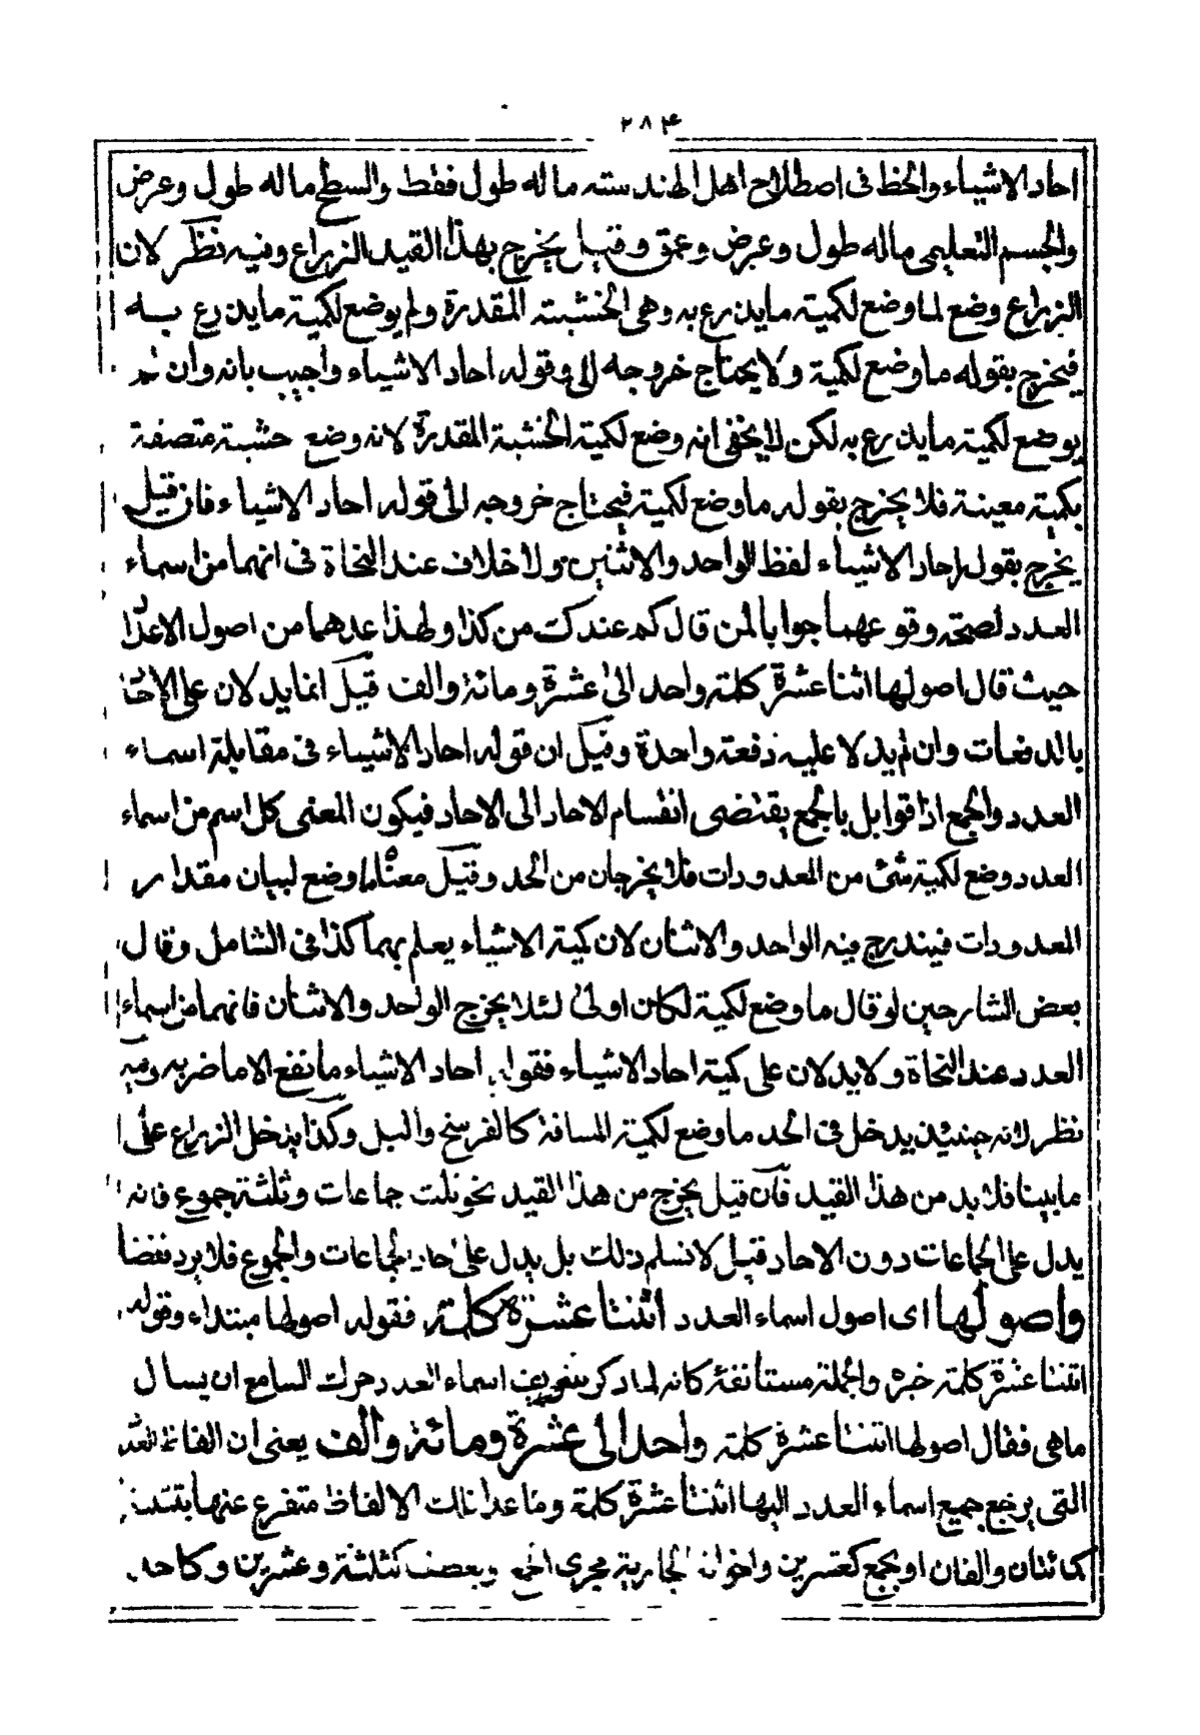 ۲۸۴
احاد الاشياء والخط فى اصطلاح اهل الهندسته ما له طول فقط والسطح ما له طول وعرض
والجسم التعليمى ماله طول وعرض وعمق وقيل يخرج بهذا القيد الذراع وفيه نظر لان
الذراع وضع لما وضع لكمية ما يذرع به وهى الخشبته المقدرة ولم يوضع لكمية ما يذرع به
فيخرج بقوله ما وضع لكمية ولا يحتاج خروجه الى وقوله احاد الاشياء واجيب بانه وان لم
يوضع لكمية ما يذرع به لكن لا يخفى انه وضع لكمية الخشبة المقدرة لانه وضع خشبة متصفة
بكمية معينة فلا يخرج بقوله ما وضع لكمية فيحتاج خروجه الى قوله احاد الاشياء فان قيل
يخرج بقوله احاد الاشياء لفظ الواحد والاثنين ولا خلاف عند النحاة فى انهما من اسماء
العدد لصحته وقوعهما جوابا لمن قال كم عندك من كذا ولهذا عدهما من اصول الاعداد
حيث قال اصولها اثنا عشرة كلمة واحد الى عشرة ومائة والف قيل انما يدلان على الاحاد
بالدفعات وان لم يدلا عليه دفعته واحدة وقيل ان قوله احاد الاشياء فى مقابلة اسماء
العدد والجمع اذا قوابل بالجمع يقتضى انقسام الاحاد الى الاحاد فيكون المعنى كل اسم من اسماء
العدد وضع لكمية شئ من المعدودات فلا يخرجان من الحد وقيل معناه ما وضع لبيان مقدار
المعدودات فيندرج فيه الواحد والاثنان لان كمية الاشياء يعلم بهما كذا فى الشامل وقال
بعض الشارحين لو قال ما وضع لكمية لكان اولى لئلا يخرج الواحد والاثنان فانهما من اسماء
العدد عند النحاة ولا يدلان على كمية احاد الاشياء فقوله احاد الاشياء ما نفع الا ما ضر به وفيه
نظر لانه حينئذ يدخل فى الحد ما وضع لكمية المسافة كالفرسخ والميل وكذا يدخل الذراع على
ما بينا فلا بد من هذا القيد فان قيل يخرج من هذا القيد نحو ثلث جماعات وثلثة جموع فانه
يدل على الجماعات دون الاحاد قيل لا نسلم ذلك بل يدل على احاد الجماعات والجموع فلا يرد نقضا
واصولها اى اصول اسماء العدد اثنتا عشرة كلمة فقوله اصولها مبتداء وقوله
اثنتا عشرة كلمة خبره والجملة مستأنفة كانه لما ذكر تعريف اسماء العدد حرك السامع ان يسأل
ما هى فقال اصولها اثنتا عشرة كلمة واحد الى عشرة ومائة والف يعنى ان الفاظ العدد
التى يرجع جميع اسماء العدد اليها اثنتا عشرة كلمة وما عدا تلك الالفاظ متفرع عنها بتثنية
كمائتان والفان او بجمع كعشرين واخواته الجارية مجرى الجمع وبعطف كثلثة وعشرين وكاحد